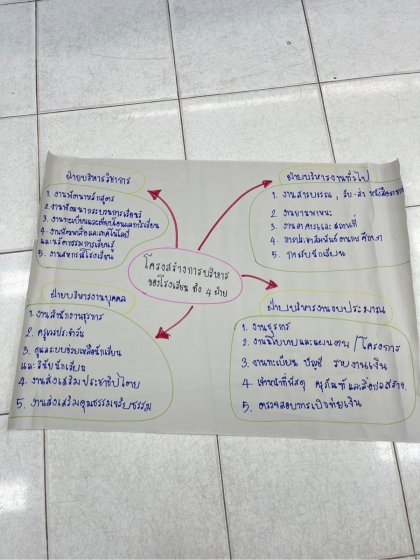 ฝ่ายบริหารวิชาการ
1. งานพัฒนาหลักสูตร
2. งานพัฒนากระบวนการเรียนรู้
3. งานทะเบียนและเทียบโอนผลการเรียน
4. งานพัฒนาสื่อและเทคโนโลยี
และนวัตกรรมการเรียนรู้
5. งานสหกรณ์โรงเรียน
ฝ่ายบริหารงานทั่วไป
1. งานสารบรรณ , รับ-ส่ง หนังสือ
2. งานยานพาหนะ
3. งานอาคารและสถานที่
4. การประชาสัมพันธ์ งานการศึกษา
5. การรับนักเรียน
โครงสร้างการบริหาร
ของโรงเรียน ทั้ง 4 ฝ่าย
ฝ่ายบริหารงานบุคคล
1. งานสำนักงานธุรการ
2. ครูเวรประจำวัน
3. ดูแลระบบช่วยเหลือนักเรียน
และวินัยนักเรียน
4. งานส่งเสริมประชาธิปไตย
5. งานส่งเสริมคุณธรรมจริยธรรม
ฝ่ายบริหารงานงบประมาณ
1. งานธุรการ
2. งานนโยบายและแผนงาน/โครงการ
3. งานทะเบียน บัญชี รายงานเงิน
4. เจ้าหน้าที่พัสดุ ครุภัณฑ์ และสิ่งก่อสร้าง
5. ตรวจสอบการเบิกจ่ายเงิน